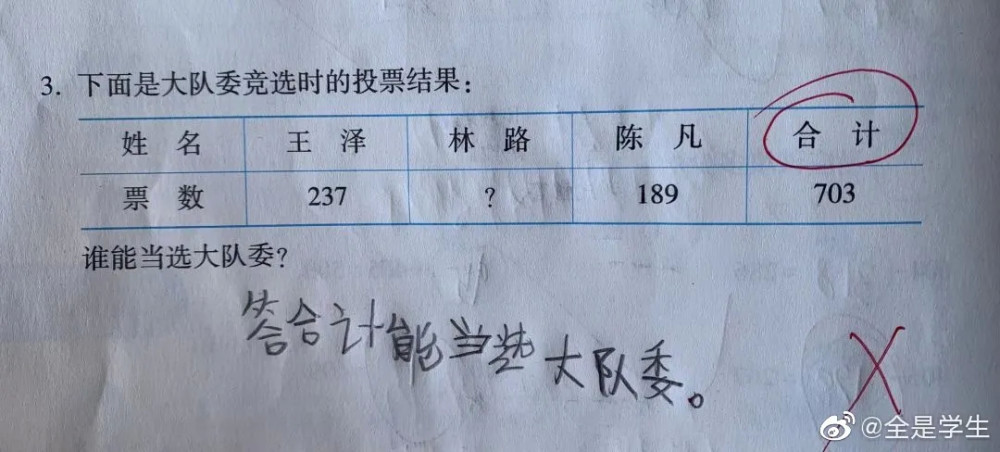 3. 下面是大队委竞选时的投票结果：
姓 名 王 泽 林 路 陈 凡 合 计
票 数 237 ? 189 703
谁能当选大队委？
答合计能当选大队委。
@全是学生